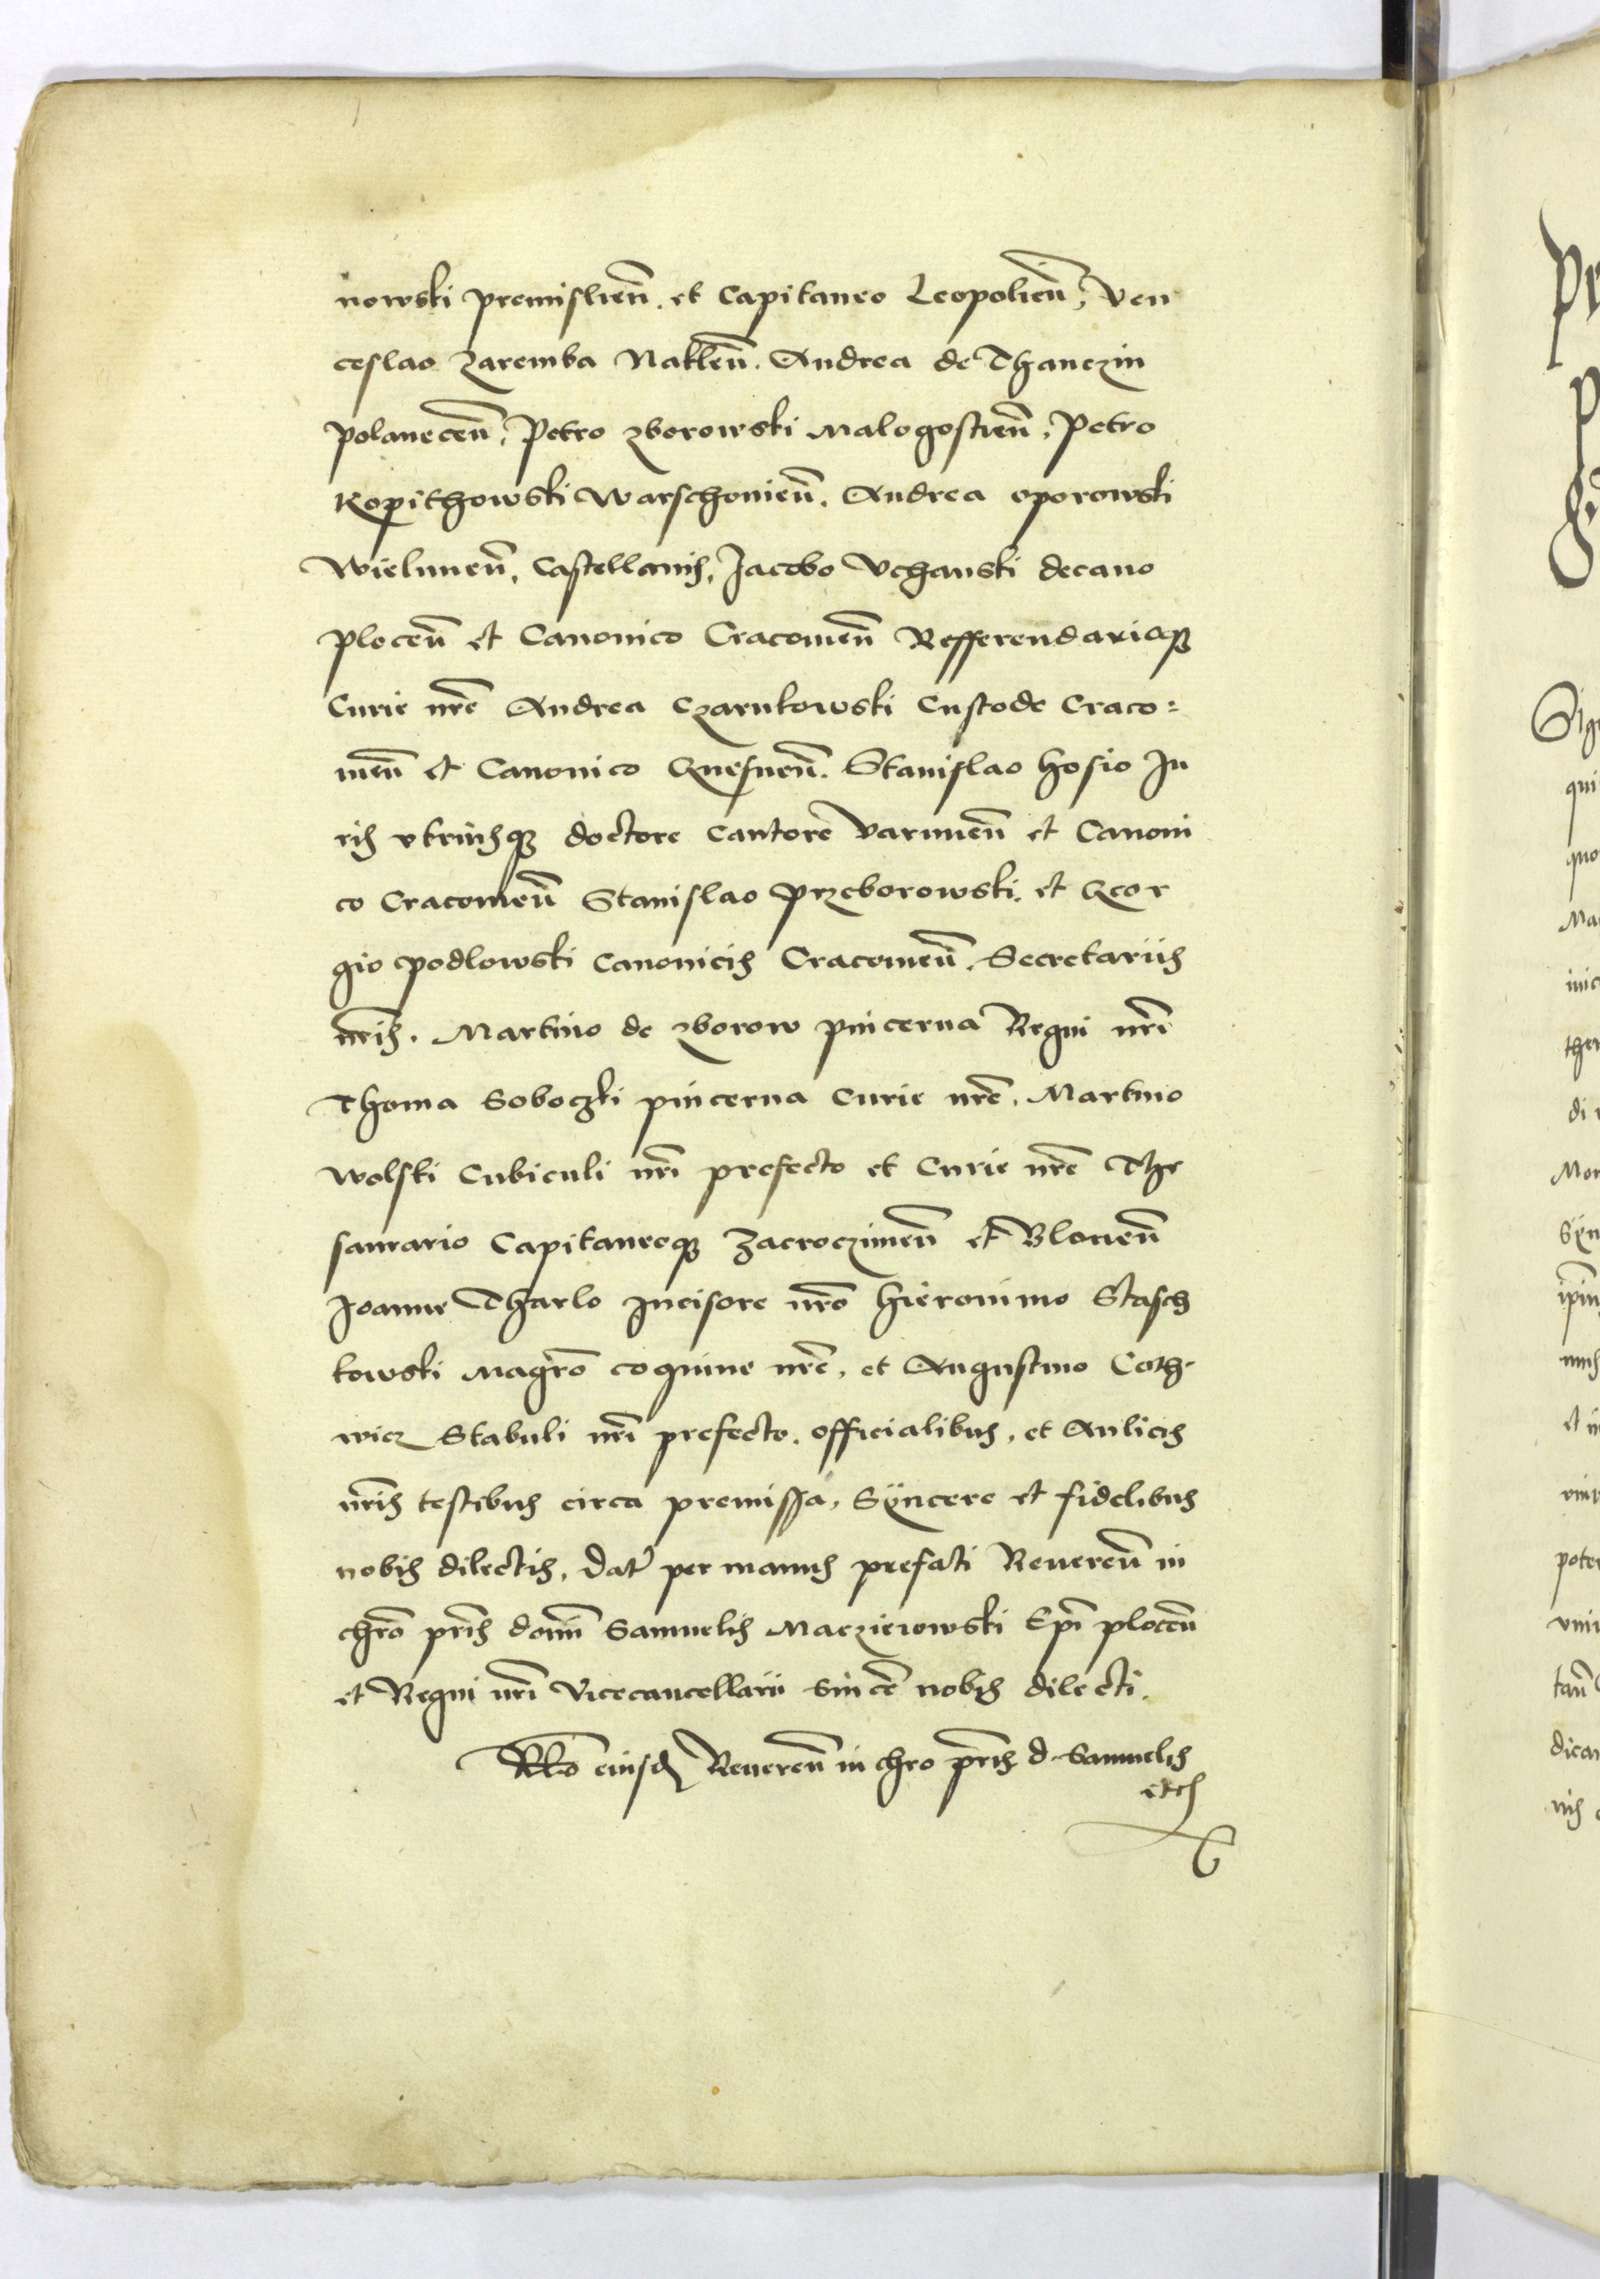 nowski premislien̄. et Capitaneo Leopolien̄, Ven
ceslao Zaremba Naklen̄. Andrea de Thanczin
polanecen̄, Petro zborowski Malogostien̄, Petro
Kopithowski Warschouien̄. Andrea oporowski
Wielunen̄, Castellanis, Jacobo Vchanski decano
plocen̄ et Canonico Cracouien̄ Refferendarioq3
Curie nr̄e Andrea Czarnkowski Custode Craco=
uien̄ et Canonico Gnesnen̄. Stanislao hosio Ju
ris vtriusq3 doctore Cantore Varmien̄ et Canoni
co Cracouien̄ Stanislao przeborowski. et Geor
gio podlowski Canonicis Cracouien̄. Secretariis
nr̄is. Martino de zborow pincerna Regni nr̄i
Thoma Soboczki pincerna Curie nr̄e. Martino
Wolski Cubiculi nr̄i prefecto et Curie nr̄e The
saurario Capitaneoq3 Zacroczimen̄ et Blonen̄
Joanne Tharlo Incisore nr̄o Hieronimo Stasch
kowski Magr̄o coquine nr̄e. et Augustino Coth
wicz Stabuli nr̄i prefecto. officialibus, et Aulicis
nr̄is testibus circa premissa, Sÿncere et fidelibus
nobis dilectis. Dat̄ per manus prefati Reueren̄ in
chr̄o pr̄is domī Samuelis Maczieiowski Ep̄i plocen̄
et Regni nr̄i Vicecancellarii sincē nobis dilecti.
Rl̄o eiusd Reueren̄ in chr̄o pr̄is d. Samuelis
etc